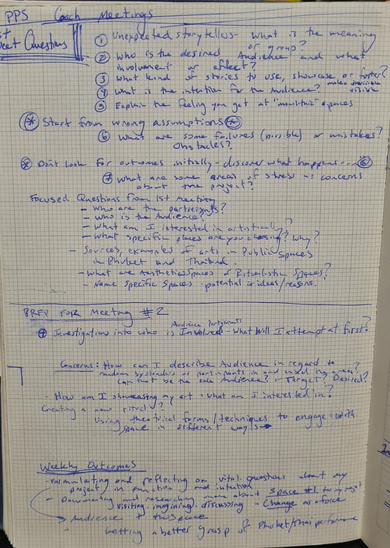 PPS Coach Meetings
Questions
① Unexpected storytellers - What is the meaning
or group?
② Who is the desired Audience and what
involvement or effect?
③ What kind of stories to use, showcase or foster?
④ What is the intention for the Audience? make invisible visible
⑤ Explain the feeling you get at spaces
Start from wrong assumptions
⑥ What are some failures (possible) or mistakes?
Obstacles?
Don't Look for outcomes initially - discover what happens...
⑦ What are some areas of stress or concerns
about the project?
Focused Questions From 1st Meeting
- Who are the participants?
- Who is the Audience?
- What am I interested in artistically?
- What specific places are you choosing? Why?
- Sources, examples of arts in Public Spaces
in Phuket and Thailand.
- What are Aesthetic Spaces or Ritualistic Spaces?
- Name specific spaces - potential ideas/reasons.
PREP FOR Meeting #2
Audience Participants
Investigations into who is Involved - What Will I attempt at first?
Concerns: How can I describe Audience in regard to
random bystanders or participants in
Can that be the sole Audience? or Target? Desired?
- How am I showcasing my art - what am I interested in?
Creating a new ritual?
Using theatrical forms/techniques to engage with
space in different ways
Weekly Outcomes
- Formulating and reflecting on vital questions about my
project in function and intention
- Documenting and researching more about Space #1 for my
visiting, imagining, discussing - Change as a force
Audience + the Space
- Getting a better grasp of Phuket/Thai performance